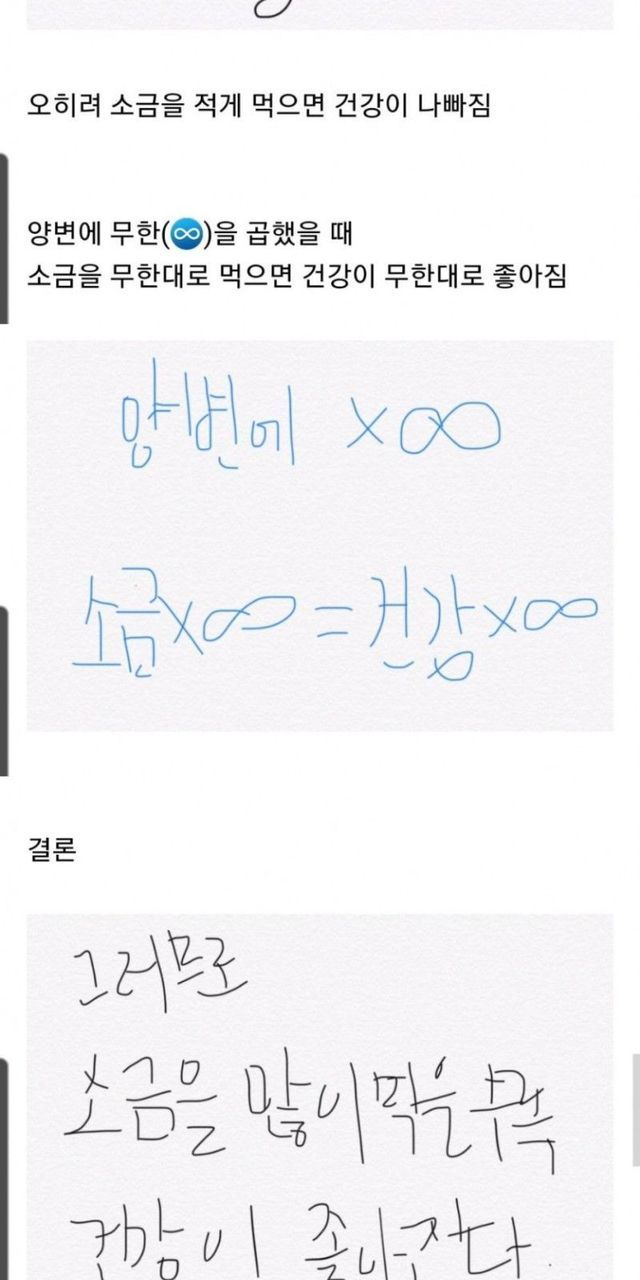 오히려 소금을 적게 먹으면 건강이 나빠짐
양변에 무한(♾)을 곱했을 때
소금을 무한대로 먹으면 건강이 무한대로 좋아짐
양변에 ×∞
소금×∞=건강×∞
결론
그러므로
소금을 많이 먹을수록
건강이 좋아진다.